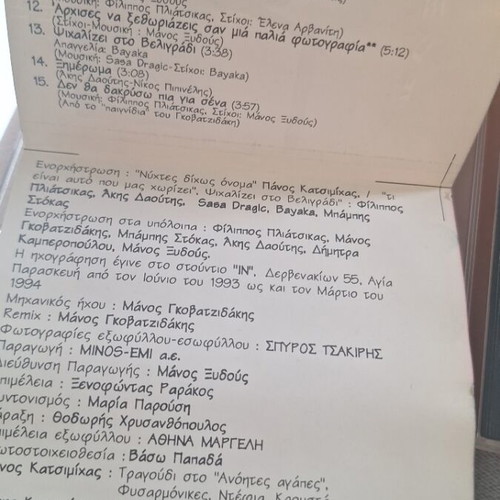 (Μουσική: Φίλιππος Πλιάτσικας, Στίχοι: Έλενα Αρβανίτη)
12. Άρχισες να ξεθωριάζεις σαν μιά παλιά φωτογραφία** (5:12)
(Στίχοι-Μουσική : Μάνος Ξυδούς)
13. Ψιχαλίζει στο Βελιγράδι (3:38)
Απαγγελία: Bayaka
(Μουσική: Sasa Dragic-Στίχοι: Bayaka)
14. Ξημέρωμα (3:08)
(Άκης Δαούτης-Νίκος Πιπινέλης)
15. Δεν θα δακρύσω πια για σένα (3:57)
(Μουσική: Φίλιππος Πλιάτσικας, Στίχοι: Μάνος Ξυδούς)
(Από το "παιγνίδια" του Γκοβατζιδάκη)
Ενορχήστρωση : "Νύχτες δίχως όνομα" Πάνος Κατσιμίχας, / "τι
είναι αυτό που μας χωρίζει", Ψιχαλίζει στο Βελιγράδι" : Φίλιππος
Πλιάτσικας, Άκης Δαούτης, Sasa Dragic, Bayaka, Μπάμπης
Στόκας
Ενορχήστρωση στα υπόλοιπα : Φίλιππος Πλιάτσικας, Μάνος
Γκοβατζιδάκης, Μπάμπης Στόκας, Άκης Δαούτης, Δήμητρα
Καμπεροπούλου, Μάνος Ξυδούς.
Η ηχογράφηση έγινε στο στούντιο "IN", Δερβενακίων 55, Αγία
Παρασκευή από τον Ιούνιο του 1993 ως και τον Μάρτιο του
1994
Μηχανικός ήχου : Μάνος Γκοβατζιδάκης
Remix : Μάνος Γκοβατζιδάκης
Φωτογραφίες εξωφύλλου-εσωφύλλου : ΣΠΥΡΟΣ ΤΣΑΚΙΡΗΣ
Παραγωγή : MINOS-EMI α.ε.
διεύθυνση Παραγωγής : Μάνος Ξυδούς
πιμέλεια : Ξενοφώντας Ραράκος
υντονισμός : Μαρία Παρούση
άραξη : Θοδωρής Χρυσανθόπουλος
πιμέλεια εξωφύλλου : ΑΘΗΝΑ ΜΑΡΓΕΛΗ
ωτοστοιχειοθεσία : Βάσω Παπαδά
νος Κατσιμίχας : Τραγούδι στο "Ανόητες αγάπες",
Φυσαρμόνικες, Ντέφια, Κρουστά